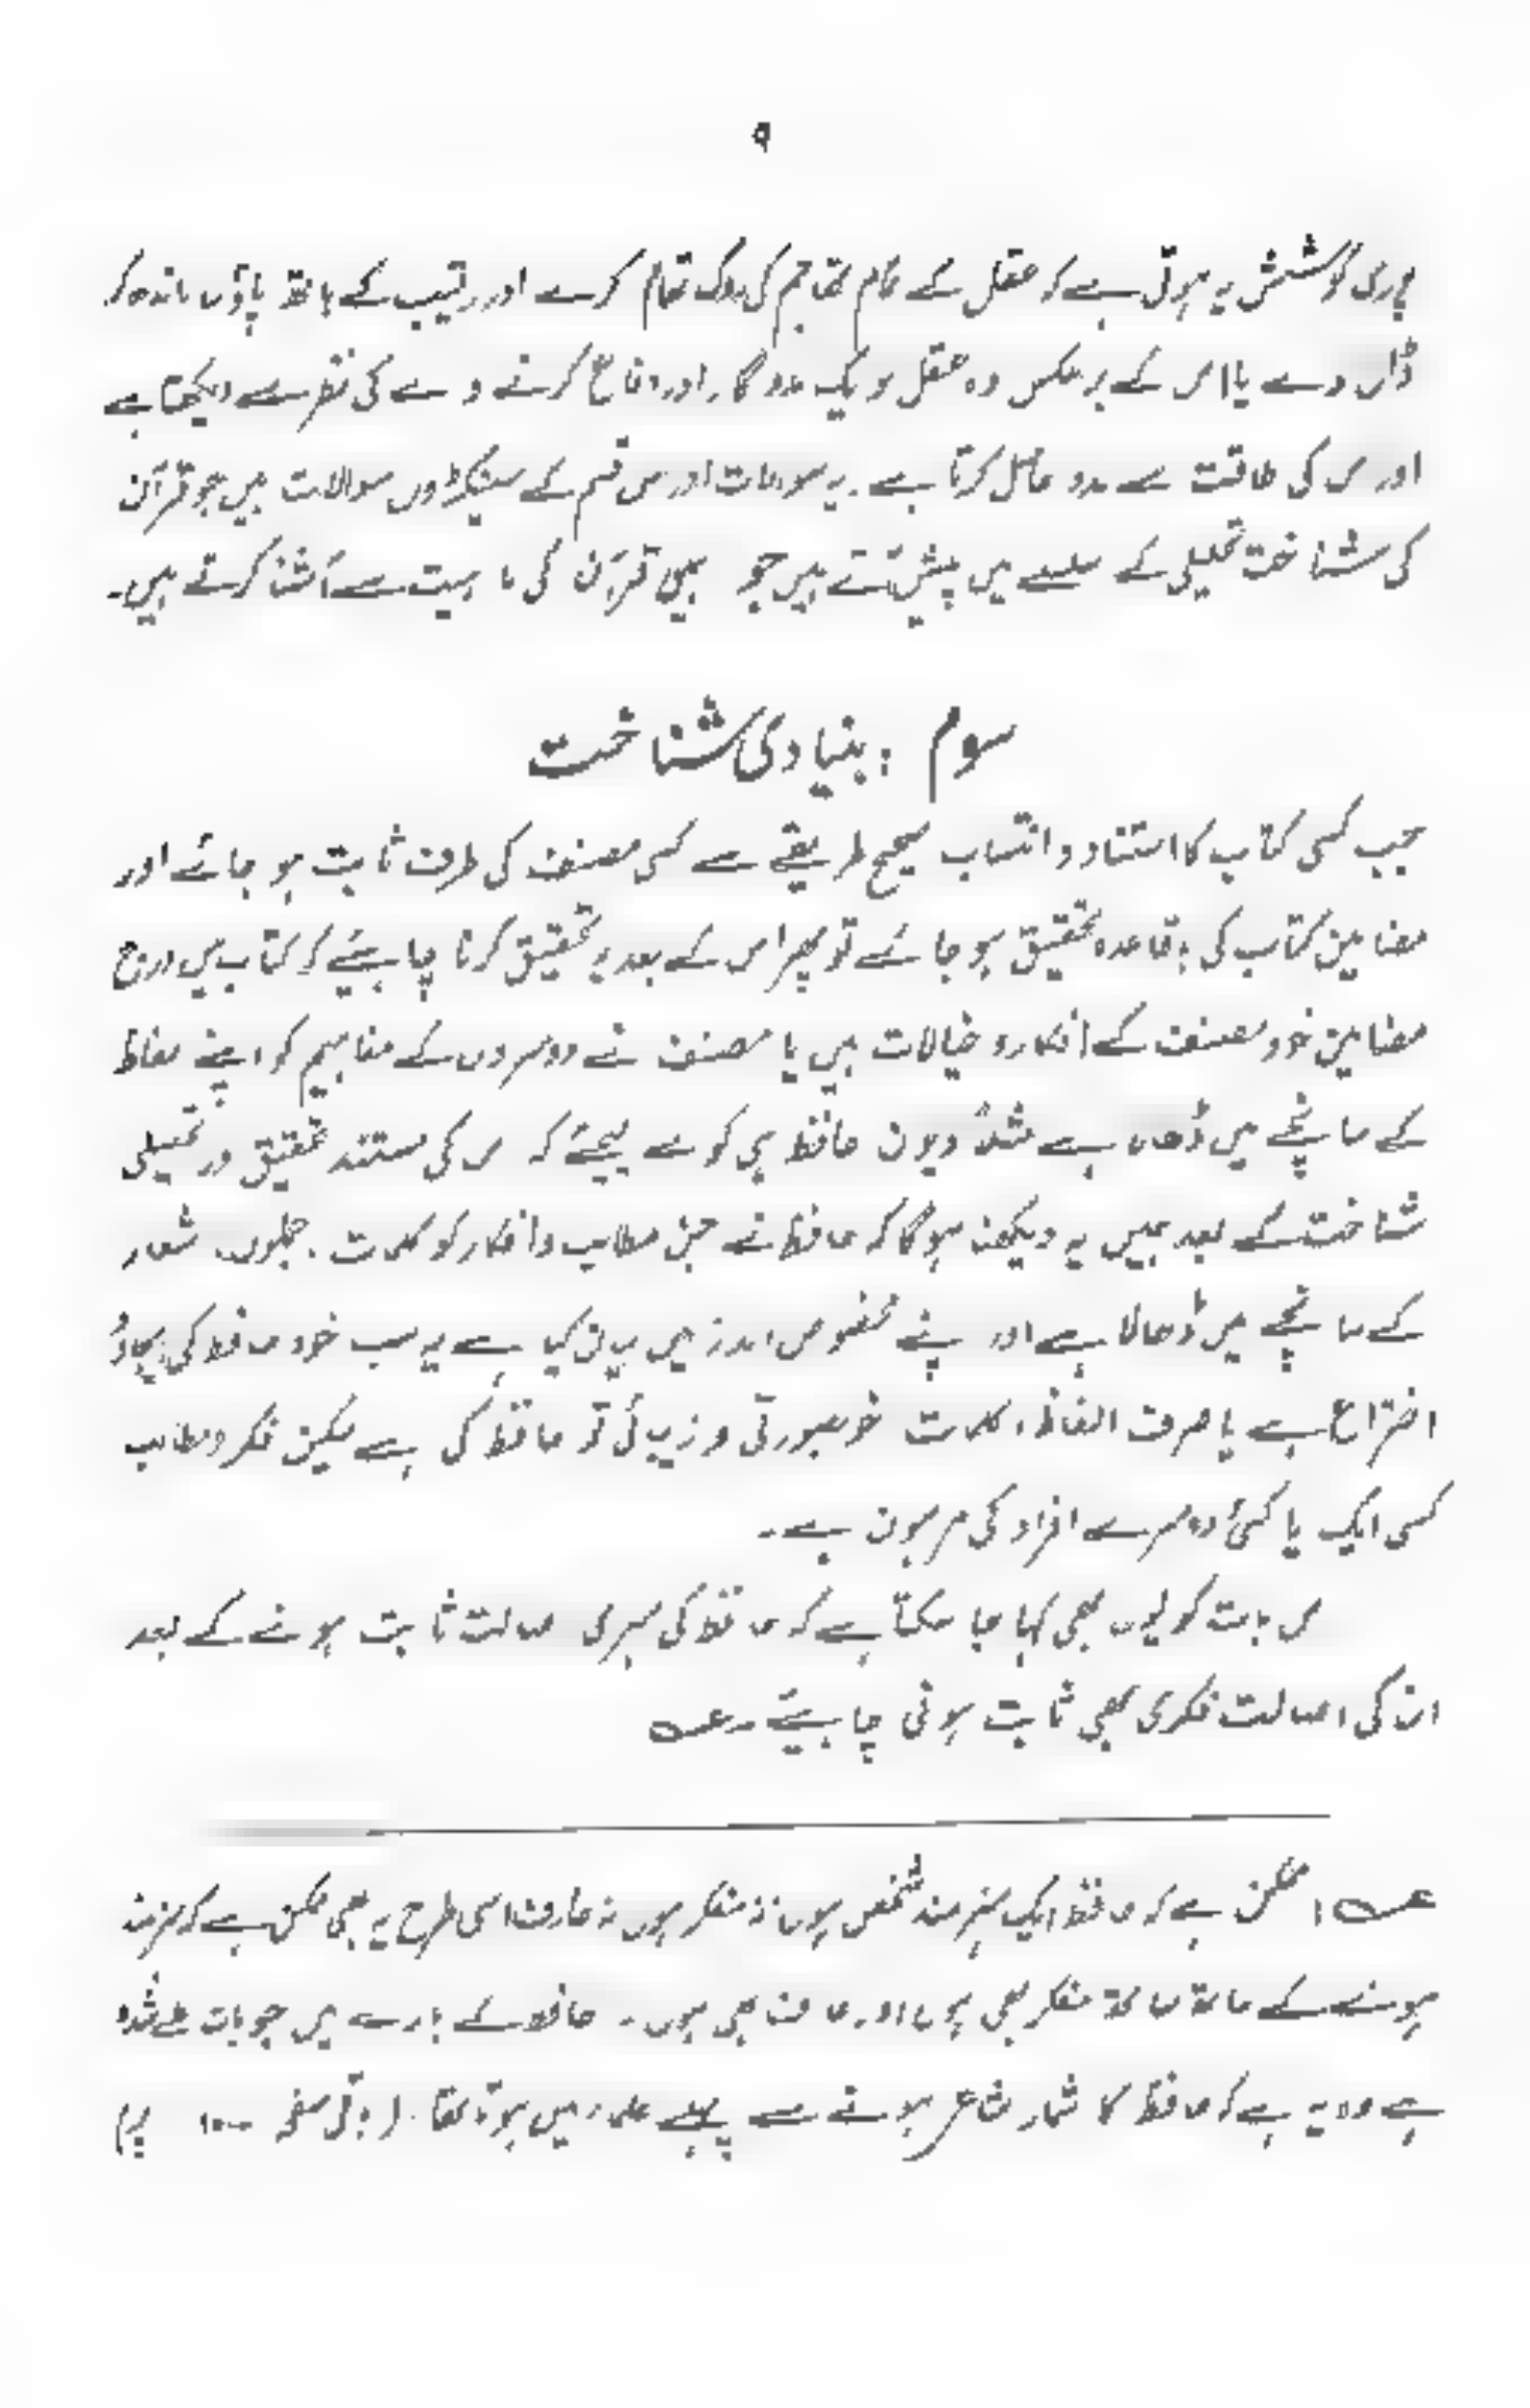 ۹
پوری کوشش یہ ہوتی ہے کہ عقل کے تمام تہاجم کی روک تھام کرے اور رقیب کے ہاتھ پاؤں باندھ کر
ڈال دے یا اس کے برعکس وہ عقل کو ایک مددگار اور دفاع کرنے والے کی نظر سے دیکھتا ہے
اور اس کی طاقت سے مدد حاصل کرتا ہے۔ یہ سوالات اور اس قسم کے سینکڑوں سوالات ہیں جو قرآن
کی شناخت تحلیلی کے سلسلے میں پیش آتے ہیں جو ہمیں قرآن کی ماہیت سے آشنا کرتے ہیں۔
سوم : بنیادی شناخت
جب کسی کتاب کا استناد و انتساب صحیح طریقے سے کسی مصنف کی طرف ثابت ہو جائے اور
مضامین کتاب کی باقاعدہ تحقیق ہو جائے تو پھر اس کے بعد یہ تحقیق کرنا چاہیئے کہ کتاب میں درج
مضامین خود مصنف کے افکار و خیالات ہیں یا مصنف نے دوسروں کے مفاہیم کو اپنے الفاظ
کے سانچے میں ڈھالا ہے مثلاً دیوان حافظ ہی کو لے لیجئے کہ اس کی مستند تحقیق اور تحلیلی
شناخت کے بعد ہمیں یہ دیکھنا ہوگا کہ حافظ نے جن مطالب و افکار کو کلمات ، جملوں، اشعار
کے سانچے میں ڈھالا ہے اور اپنے مخصوص انداز میں بیان کیا ہے یہ سب خود حافظ کی ایجاد و
اختراع ہے یا صرف الفاظ، کلمات خوبصورتی و زیبائی تو حافظ کی ہے لیکن فکر و مطالب
کسی ایک یا کئی دوسرے افراد کی مرہون ہے۔
اس بات کو یوں بھی کہا جا سکتا ہے کہ حافظ کی ہنری اصالت ثابت ہونے کے بعد
ان کی اصالت فکری بھی ثابت ہونی چاہیئے۔ عـــہ
عـــہ : ممکن ہے کہ حافظ ایک ہنرمند شخص ہوں نہ مفکر ہوں نہ عارف اسی طرح یہ بھی ممکن ہے کہ ہنرمند
ہونے کے ساتھ ساتھ مفکر بھی ہوں اور عارف بھی ہوں۔ حافظ کے بارے میں جو بات طے شدہ
ہے وہ یہ ہے کہ حافظ کا شمار شاعر ہونے سے پہلے علماء میں ہوتا تھا۔ (باقی صفحہ ۱۰ پر)